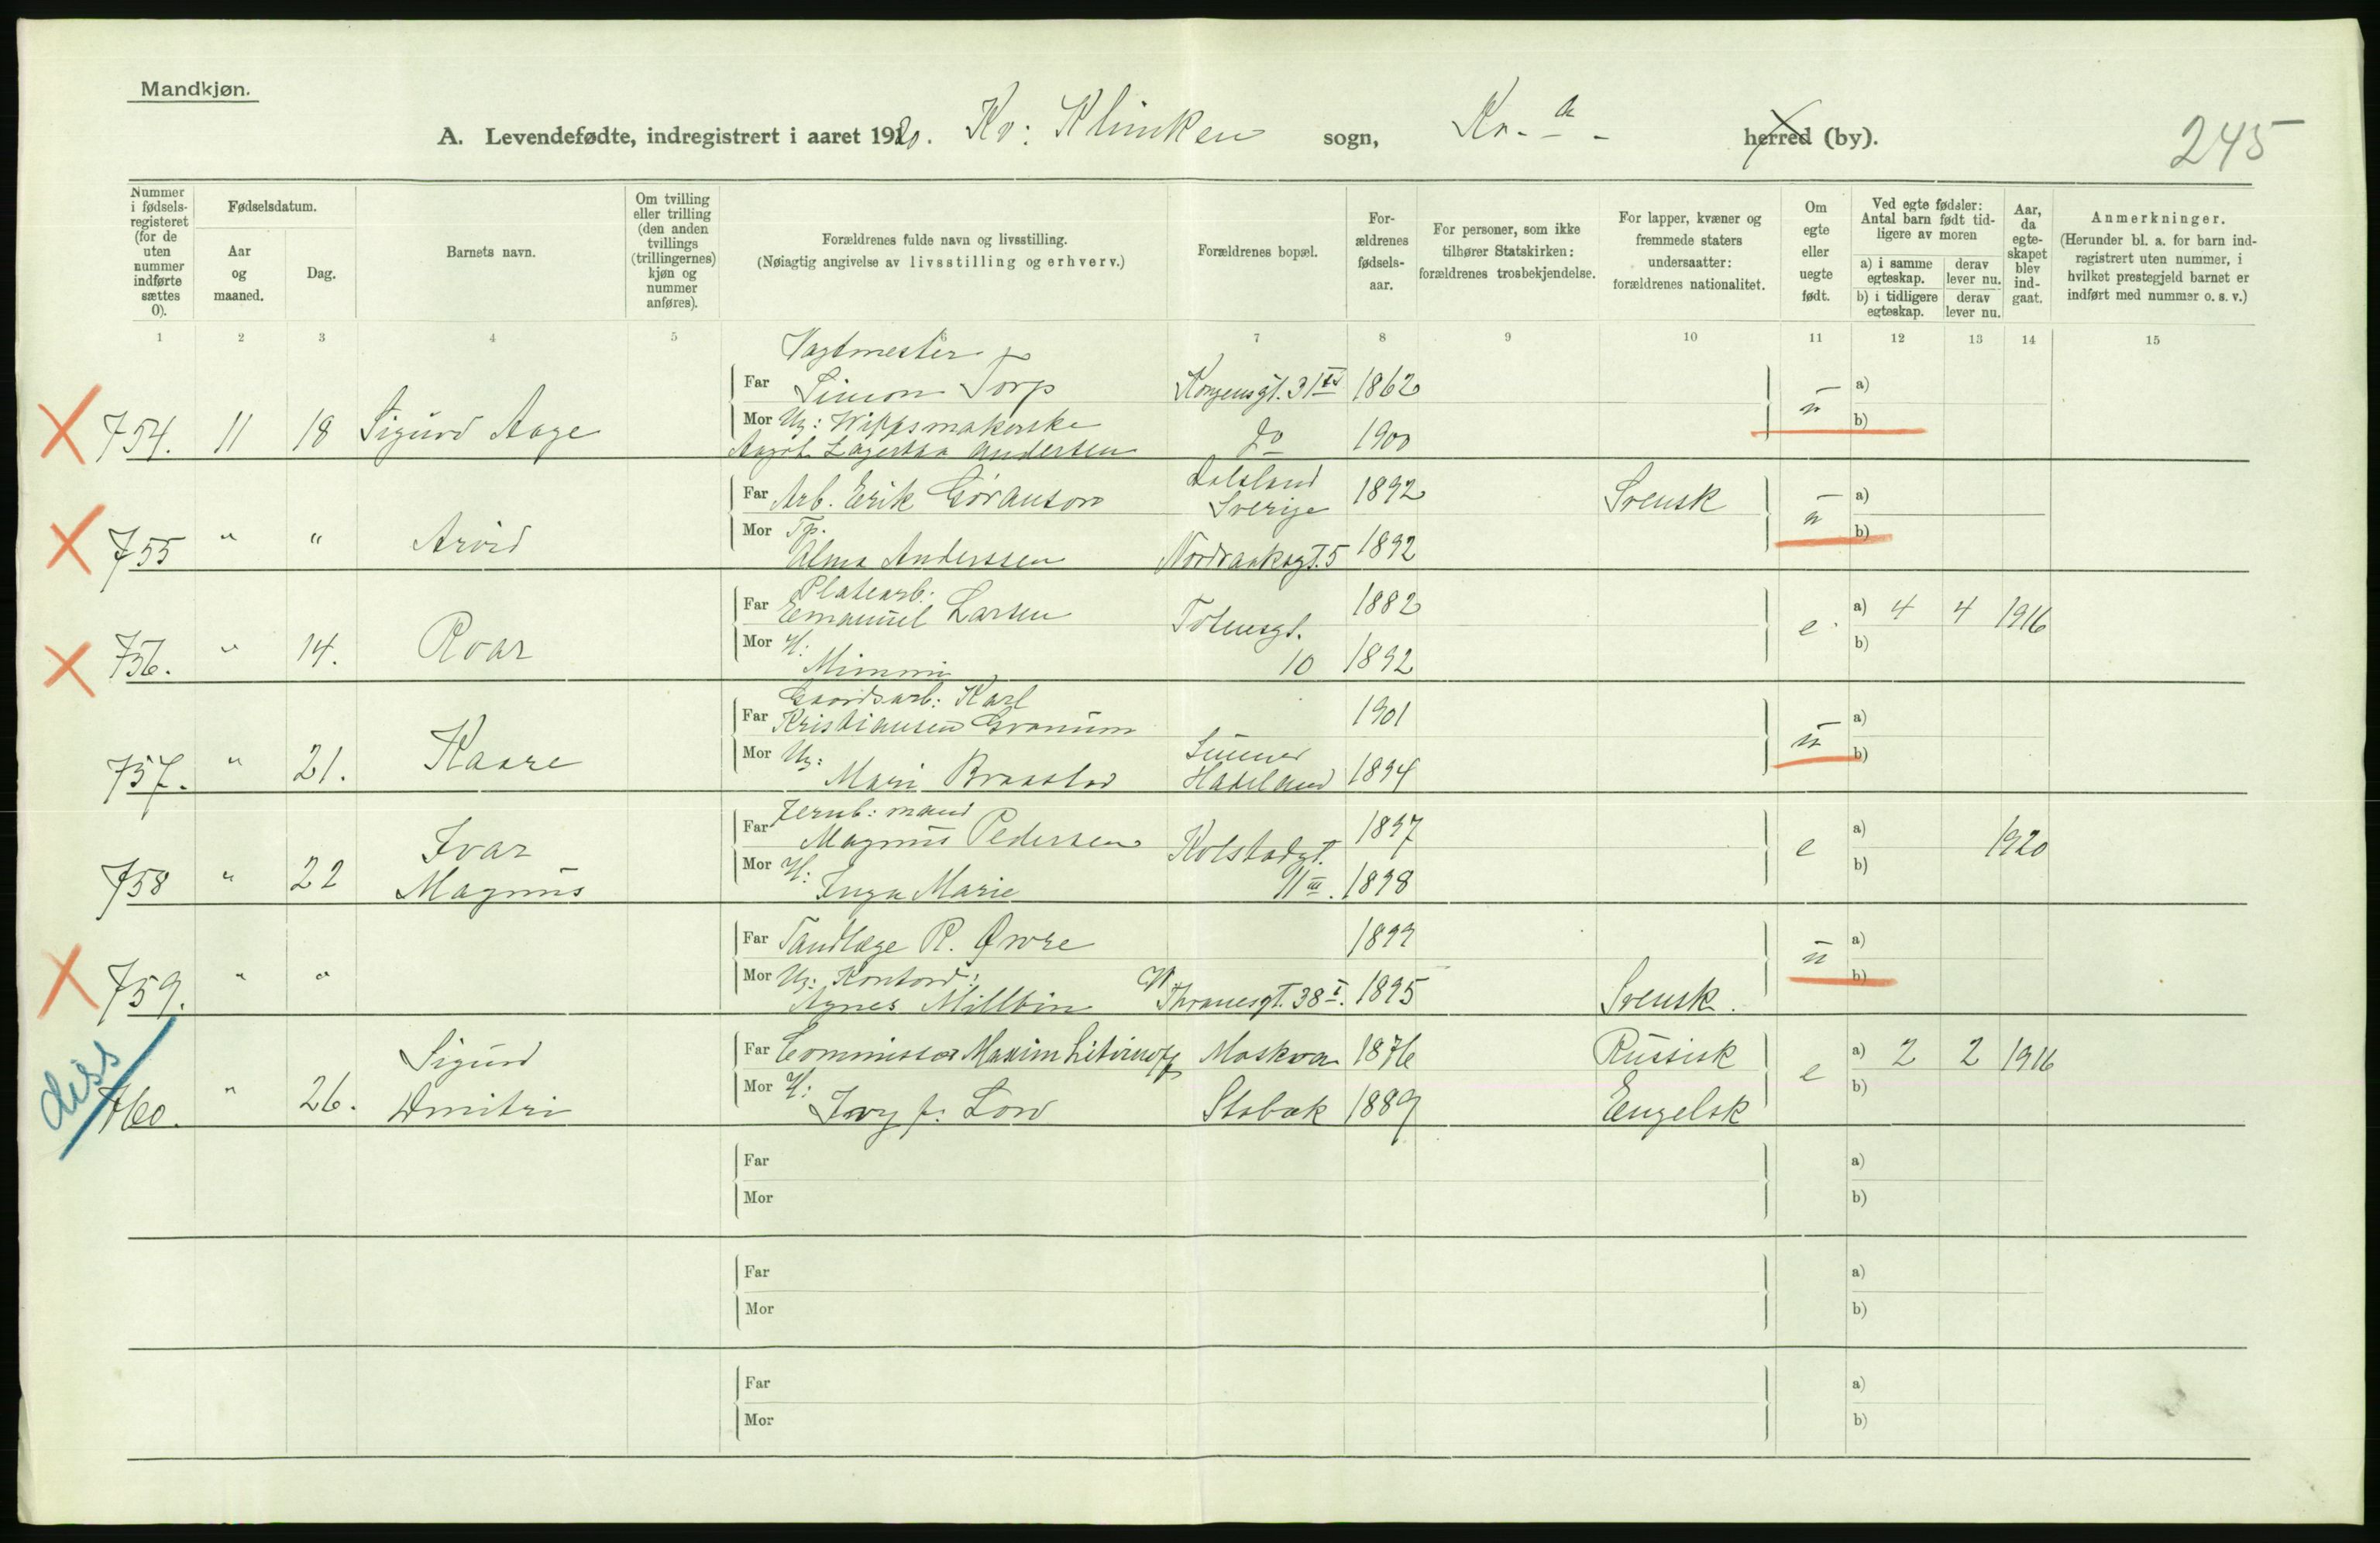 Mandkjøn.
A. Levendefødte, indregistrert i aaret 1920. Kv: Klinken sogn, Kr.-a- herred (by).
245
Nummer i fødselsregisteret (for de uten nummer indførte sættes 0).
Fødselsdatum.
Aar og maaned.
Dag.
Barnets navn.
Om tvilling eller trilling (den anden tvillings (trillingernes) kjøn og nummer anføres).
Forældrenes fulde navn og livsstilling.
(Nøiagtig angivelse av livsstilling og erhverv.)
Forældrenes bopæl.
Forældrenes fødselsaar.
For personer, som ikke tilhører Statskirken: forældrenes trosbekjendelse.
For lapper, kvæner og fremmede staters undersaatter: forældrenes nationalitet.
Om egte eller uegte født.
Ved egte fødsler: Antal barn født tidligere av moren
a) i samme egteskap.
derav lever nu.
b) i tidligere egteskap.
derav lever nu.
Aar, da egteskapet blev indgaat.
Anmerkninger.
(Herunder bl. a. for barn indregistrert uten nummer, i hvilket prestegjeld barnet er indført med nummer o. s. v.)
1 2 3 4 5 6 7 8 9 10 11 12 13 14 15
Vagtmester
Far Simon Torp Kongensgt. 31 1862 a)
754. 11 18 Sigurd Aage Mor Ug: Wippsmakerske u b)
Lagertha Andersen do 1900
Far Arb. Erik Göranson Dalsland Sverige 1892 Svensk a)
755 " " Arvid Mor Tp. u b)
Alma Anderssen Nordraaksgt. 5 1892
Platearb:
Far Emanuel Larsen Totensgt. 1882 a) 4 4 1916
756. " 14. Roar Mor H: e b)
Mimmi 10 1892
Gaardsarb: Karl
Far Kristiansen Granum 1901 a)
757. " 21. Kaare Mor Ug: u b)
Mari Braastad Lunner Hadeland 1894
Jernb: mand
Far Magnus Pedersen Kolstadgt. 1897 a) 1920
758 " 22 Ivar Magnus Mor H: e b)
Inga Marie 11 III. 1898
Far Tandlæge R. Øvre 1899 a)
759. " " Mor Ug: Kontord: u b)
Agnes Millbin Thranesgt. 38 I. 1895 Svensk.
diss
Far Commissær Maxim Litvinoff Moskva 1876 Russisk a) 2 2 1916
760. " 26. Sigurd Dmitri Mor H: e b)
Ivy f. Low Stabæk 1889 Engelsk
Far a)
Mor b)
Far a)
Mor b)
Far a)
Mor b)